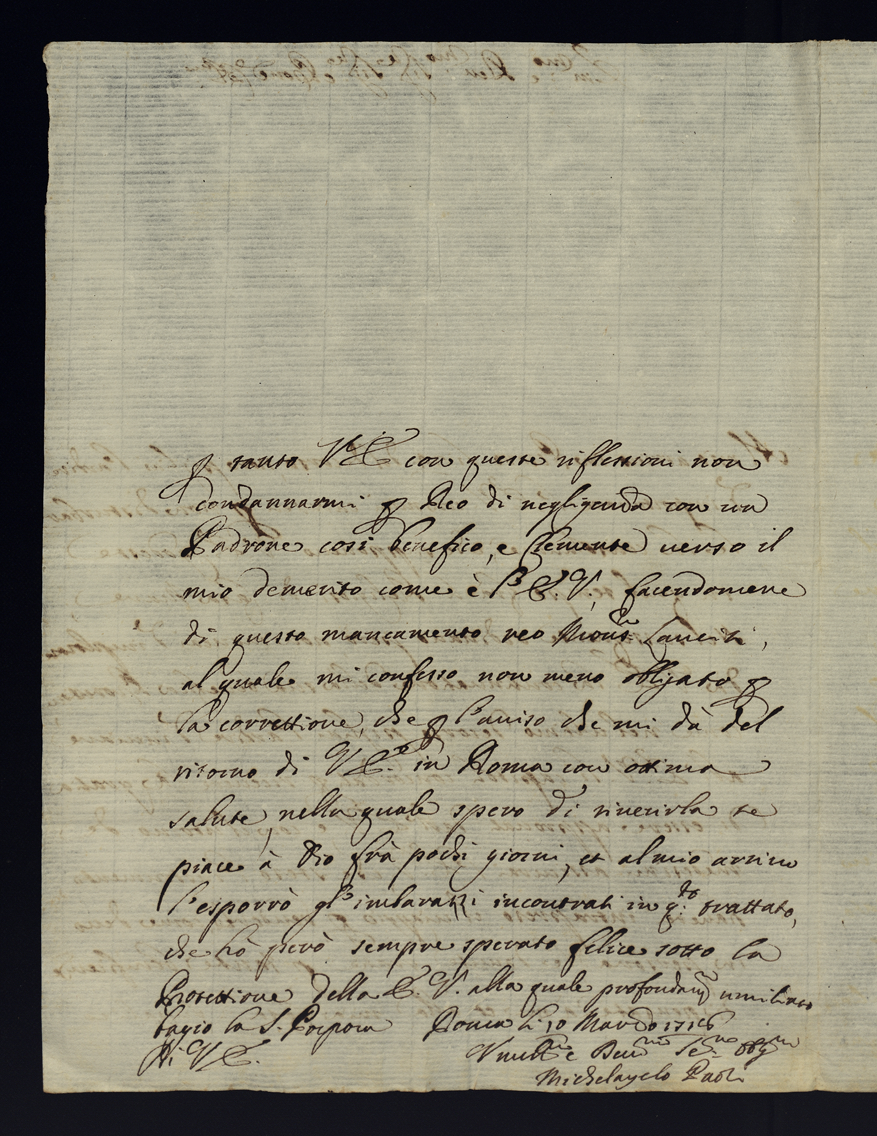 tanto V. E. con queste riflessioni non
condannarmi Reo di negligenza con un
Padrone così benefico, e Clemente verso il
mio demerito come è l'E. V. facendomene
di questo mancamento reo Mons.r
al quale mi confesso non meno obligato
la correttione, che l'auiso che mi dà del
ritorno di V. E. in Roma con ottima
salute, nella quale spero di riuerirla se
piace à Dio frà pochi giorni, et al mio arriuo
l'esporrò gl'imbarazzi incontrati in q.to trattato,
che hò però sempre sperato felice sotto la
Protettione della E. V. alla quale profondam.e umiliato
bagio la S. Porpora Roma li 10 Marzo
Di V. E.
Michelangelo